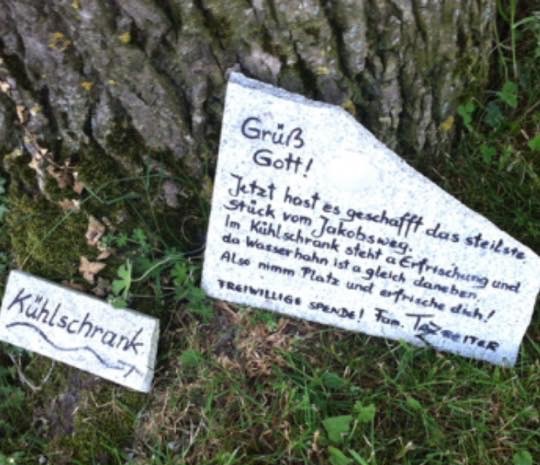 Grüß
Gott!
Jetzt hast es geschafft das steilste
Stück vom Jakobsweg.
Im Kühlschrank steht a Erfrischung und
da Wasserhahn ist a gleich daneben.
Also nimm Platz und erfrische dich!
FREIWILLIGE SPENDE! Fam.
Kühlschrank